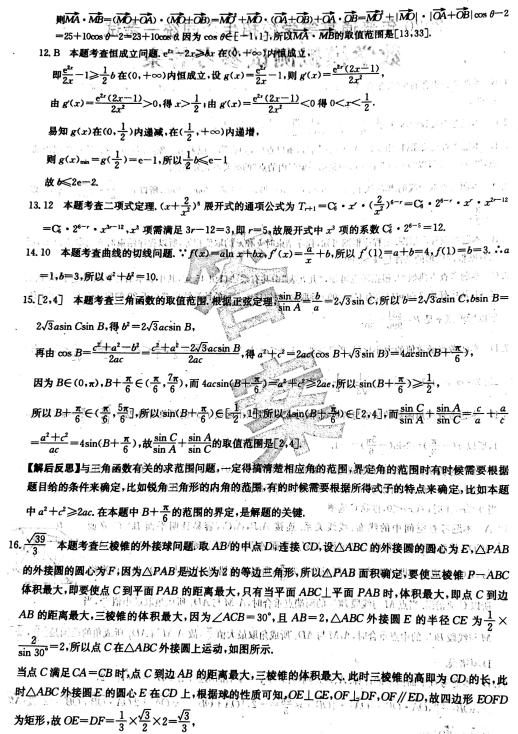 则MA·MB=(MO+OA)·(MO+OB)=MO²+MO·(OA+OB)+OA·OB=MO²+|MO|·|OA+OB|cos θ-2
=25+10cos θ-2=23+10cos θ,因为 cos θ∈[-1,1],所以MA·MB的取值范围是[13,33].
12.B 本题考查恒成立问题. e²ˣ-2x≥bx 在(0,+∞)内恒成立,
即e²ˣ/2x-1≥1/2 b在(0,+∞)内恒成立,设 g(x)=e²ˣ/2x-1,则 g′(x)=e²ˣ(2x-1)/2x²,
由 g′(x)=e²ˣ(2x-1)/2x²>0,得 x>1/2;由 g′(x)=e²ˣ(2x-1)/2x²<0 得 0<x<1/2,
易知 g(x)在(0,1/2)内递减,在(1/2,+∞)内递增,
则 g(x)min=g(1/2)=e-1,所以1/2 b≤e-1
故 b≤2e-2.
13.12 本题考查二项式定理.
=C₆ʳ·2⁶⁻ʳ·x³ʳ⁻¹²,x³ 项需满足 3r-12=3,即 r=5,故展开式中 x³ 项的系数 C₆⁵·2⁶⁻⁵=12.
14.10 本题考查曲线的切线问题.∵f(x)=aln x+bx,f′(x)=a/x+b,所以 f′(1)=a+b=4,f(1)=b=3.∴a
=1,b=3,所以 a²+b²=10.
15.[2,4] 本题考查三角函数的取值范围.根据正弦定理,sin B/sin A=b/a=2√3sin C,所以 b=2√3asin C,bsin B=
2√3asin Csin B,得 b²=2√3acsin B,
再由 cos B=c²+a²-b²/2ac=c²+a²-2√3acsin B/2ac,得 a²+c²=2ac(cos B+√3sin B)=4acsin(B+π/6),
因为 B∈(0,π),B+π/6∈(π/6,7π/6),而 4acsin(B+π/6)=a²+c²≥2ac,所以 sin(B+π/6)≥1/2,
所以 B+π/6∈(π/6,5π/6],所以 sin(B+π/6)∈[1/2,1],所以 4sin(B+π/6)∈[2,4],而sin C/sin A+sin A/sin C=c/a+a/c
=a²+c²/ac=4sin(B+π/6),故sin C/sin A+sin A/sin C的取值范围是[2,4].
【解后反思】与三角函数有关的求范围问题,一定得搞清楚相应角的范围,界定角的范围时有时候需要根据
题目给的条件来确定,比如锐角三角形的内角的范围,有的时候需要根据所得式子的特点来确定,比如本题
中 a²+c²≥2ac.在本题中 B+π/6 的范围的界定,是解题的关键.
16.√39/3 本题考查三棱锥的外接球问题.取 AB的中点D,连接 CD,设△ABC 的外接圆的圆心为E,△PAB
的外接圆的圆心为F,因为△PAB是边长为2的等边三角形,所以△PAB 面积确定,要使三棱锥 P-ABC
体积最大,即要使点 C 到平面 PAB 的距离最大,只有当平面 ABC⊥平面 PAB 时,体积最大,即点 C 到边
AB 的距离最大,三棱锥的体积最大,因为∠ACB=30°,且 AB=2,△ABC 外接圆 E 的半径 CE 为1/2×
2/sin 30°=2,所以点 C 在△ABC 外接圆上运动,如图所示.
当点 C 满足CA=CB时,点 C 到边 AB 的距离最大,三棱锥的体积最大.此时三棱锥的高即为 CD 的长,此
时△ABC 外接圆 E 的圆心 E 在 CD 上,根据球的性质可知,OE⊥CE,OF⊥DF,OF∥ED,故四边形 EOFD
为矩形,故 OE=DF=1/3×√3/2×2=√3/3,
答案